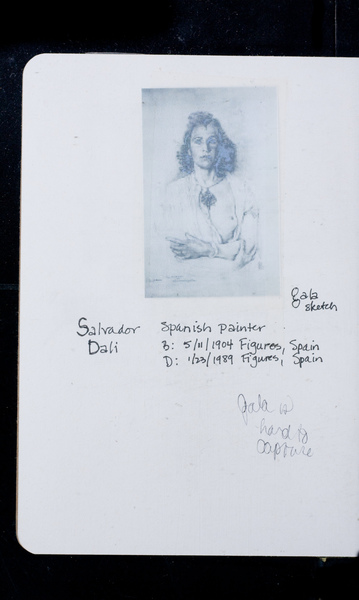 Gala
sketch
Salvador Spanish painter
Dali B: 5/11/1904 Figures, Spain
D: 1/23/1989 Figures, Spain
Gala is
hard to
capture